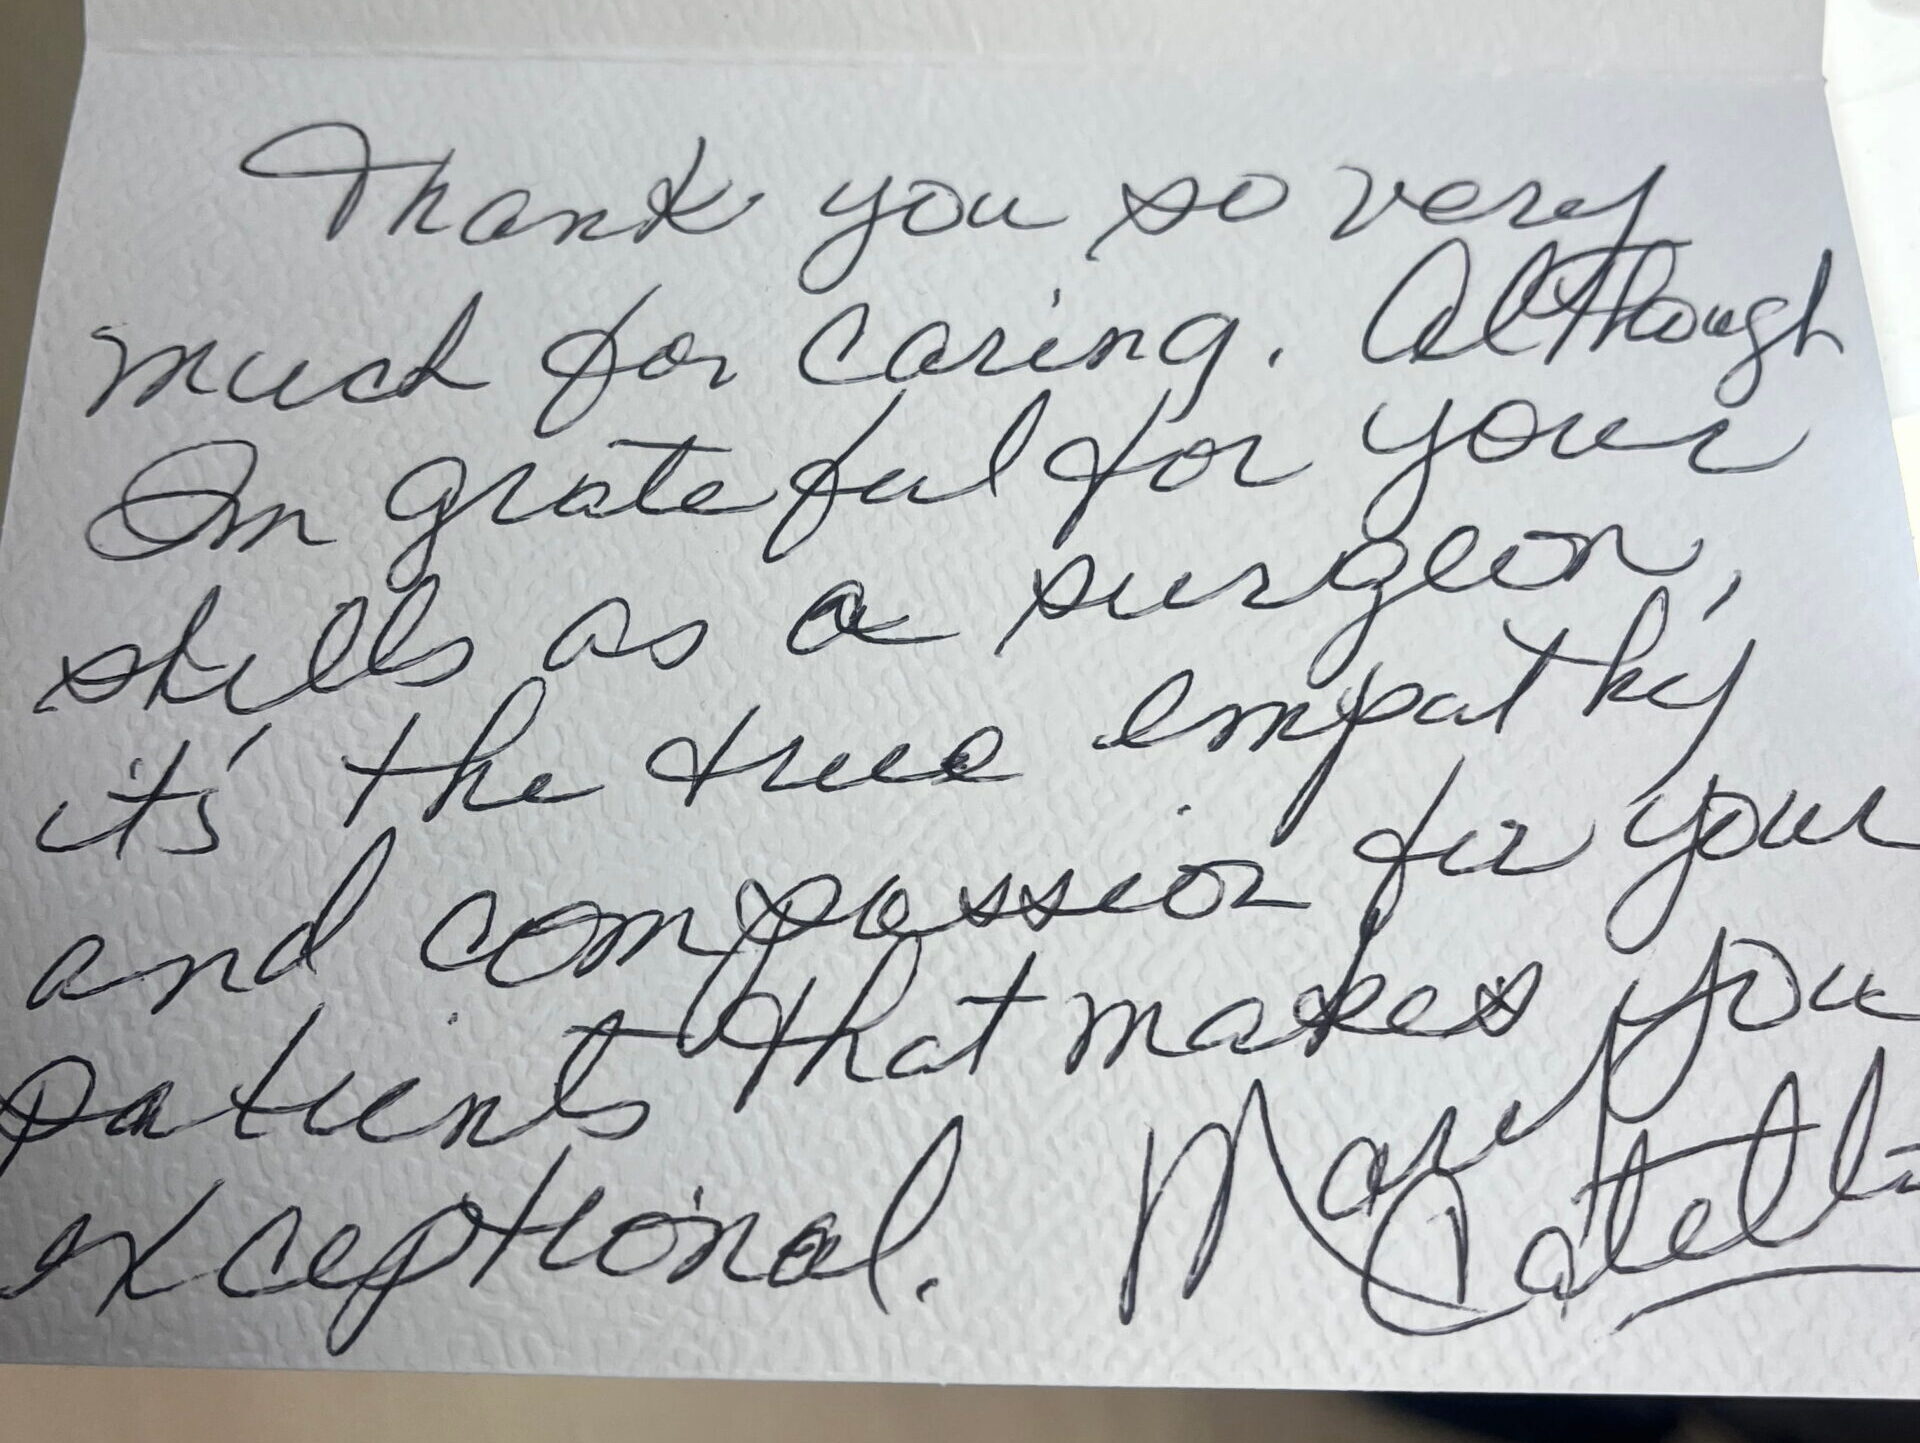 Thank you so very
much for caring. Although
Im grateful for your
skills as a surgeon,
it's the true empathy
and compassion for your
patients that makes you
exceptional. Mary